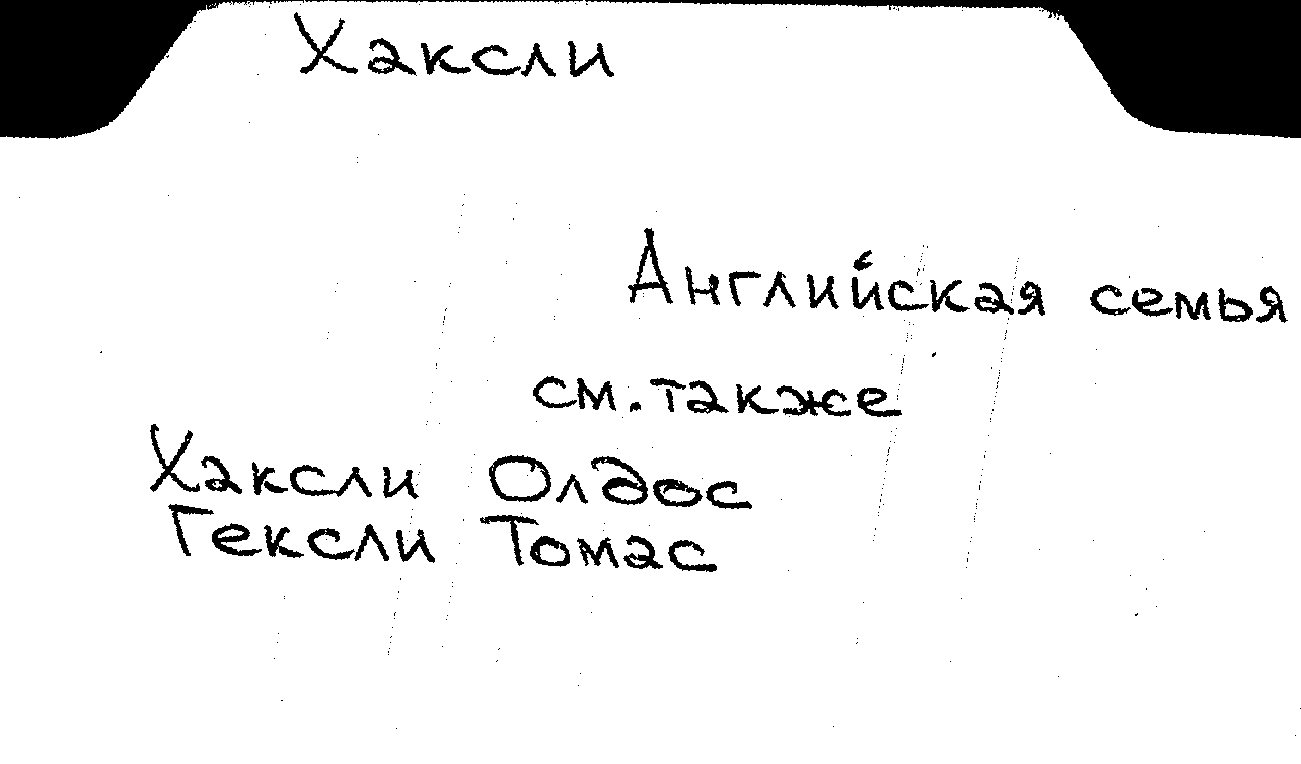 Хаксли
Английская семья
см. также
Хаксли Олдос
Гексли Томас